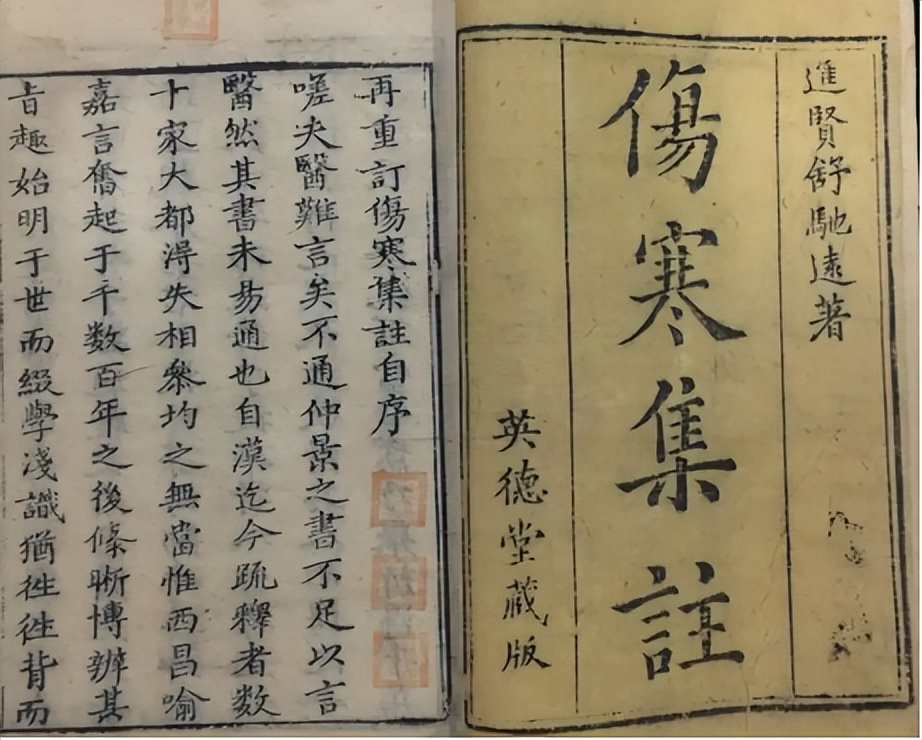 進賢舒馳遠著
傷寒集註
英德堂藏版
再重訂傷寒集註自序
嗟夫醫難言矣不通仲景之書不足以言
醫然其書未易通也自漢迄今䟽釋者數
十家大都淂失相叅均之無當惟西昌喻
嘉言奮起于千数百年之後條晰博辨其
㫖趣始明于世而綴學淺識猶徃徃背而